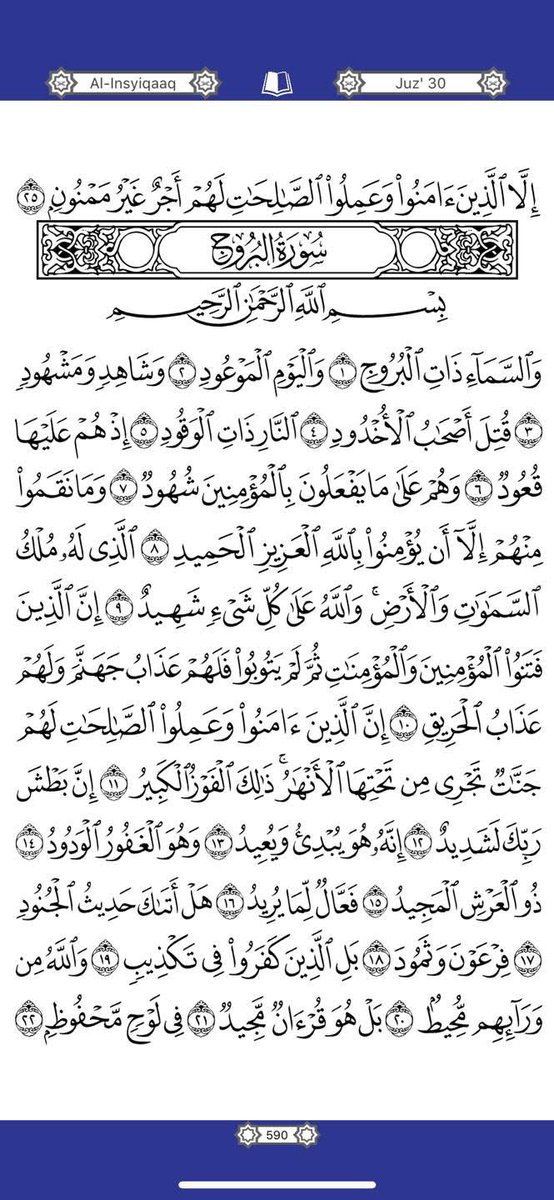 Al-Insyiqaaq
Juz' 30
إِلَّا ٱلَّذِينَ ءَامَنُوا۟ وَعَمِلُوا۟ ٱلصَّـٰلِحَـٰتِ لَهُمْ أَجْرٌ غَيْرُ مَمْنُونٍۭ ٢٥
سُورَةُ البُرُوجِ
بِسْمِ ٱللَّهِ ٱلرَّحْمَـٰنِ ٱلرَّحِيمِ
وَٱلسَّمَآءِ ذَاتِ ٱلْبُرُوجِ ١ وَٱلْيَوْمِ ٱلْمَوْعُودِ ٢ وَشَاهِدٍ وَمَشْهُودٍ
٣ قُتِلَ أَصْحَـٰبُ ٱلْأُخْدُودِ ٤ ٱلنَّارِ ذَاتِ ٱلْوَقُودِ ٥ إِذْ هُمْ عَلَيْهَا
قُعُودٌ ٦ وَهُمْ عَلَىٰ مَا يَفْعَلُونَ بِٱلْمُؤْمِنِينَ شُهُودٌ ٧ وَمَا نَقَمُوا۟
مِنْهُمْ إِلَّآ أَن يُؤْمِنُوا۟ بِٱللَّهِ ٱلْعَزِيزِ ٱلْحَمِيدِ ٨ ٱلَّذِى لَهُۥ مُلْكُ
ٱلسَّمَـٰوَٰتِ وَٱلْأَرْضِ ۚ وَٱللَّهُ عَلَىٰ كُلِّ شَىْءٍ شَهِيدٌ ٩ إِنَّ ٱلَّذِينَ
فَتَنُوا۟ ٱلْمُؤْمِنِينَ وَٱلْمُؤْمِنَـٰتِ ثُمَّ لَمْ يَتُوبُوا۟ فَلَهُمْ عَذَابُ جَهَنَّمَ وَلَهُمْ
عَذَابُ ٱلْحَرِيقِ ١٠ إِنَّ ٱلَّذِينَ ءَامَنُوا۟ وَعَمِلُوا۟ ٱلصَّـٰلِحَـٰتِ لَهُمْ
جَنَّـٰتٌ تَجْرِى مِن تَحْتِهَا ٱلْأَنْهَـٰرُ ۚ ذَٰلِكَ ٱلْفَوْزُ ٱلْكَبِيرُ ١١ إِنَّ بَطْشَ
رَبِّكَ لَشَدِيدٌ ١٢ إِنَّهُۥ هُوَ يُبْدِئُ وَيُعِيدُ ١٣ وَهُوَ ٱلْغَفُورُ ٱلْوَدُودُ ١٤
ذُو ٱلْعَرْشِ ٱلْمَجِيدُ ١٥ فَعَّالٌ لِّمَا يُرِيدُ ١٦ هَلْ أَتَىٰكَ حَدِيثُ ٱلْجُنُودِ
١٧ فِرْعَوْنَ وَثَمُودَ ١٨ بَلِ ٱلَّذِينَ كَفَرُوا۟ فِى تَكْذِيبٍ ١٩ وَٱللَّهُ مِن
وَرَآئِهِم مُّحِيطٌۢ ٢٠ بَلْ هُوَ قُرْءَانٌ مَّجِيدٌ ٢١ فِى لَوْحٍ مَّحْفُوظٍۭ ٢٢
590